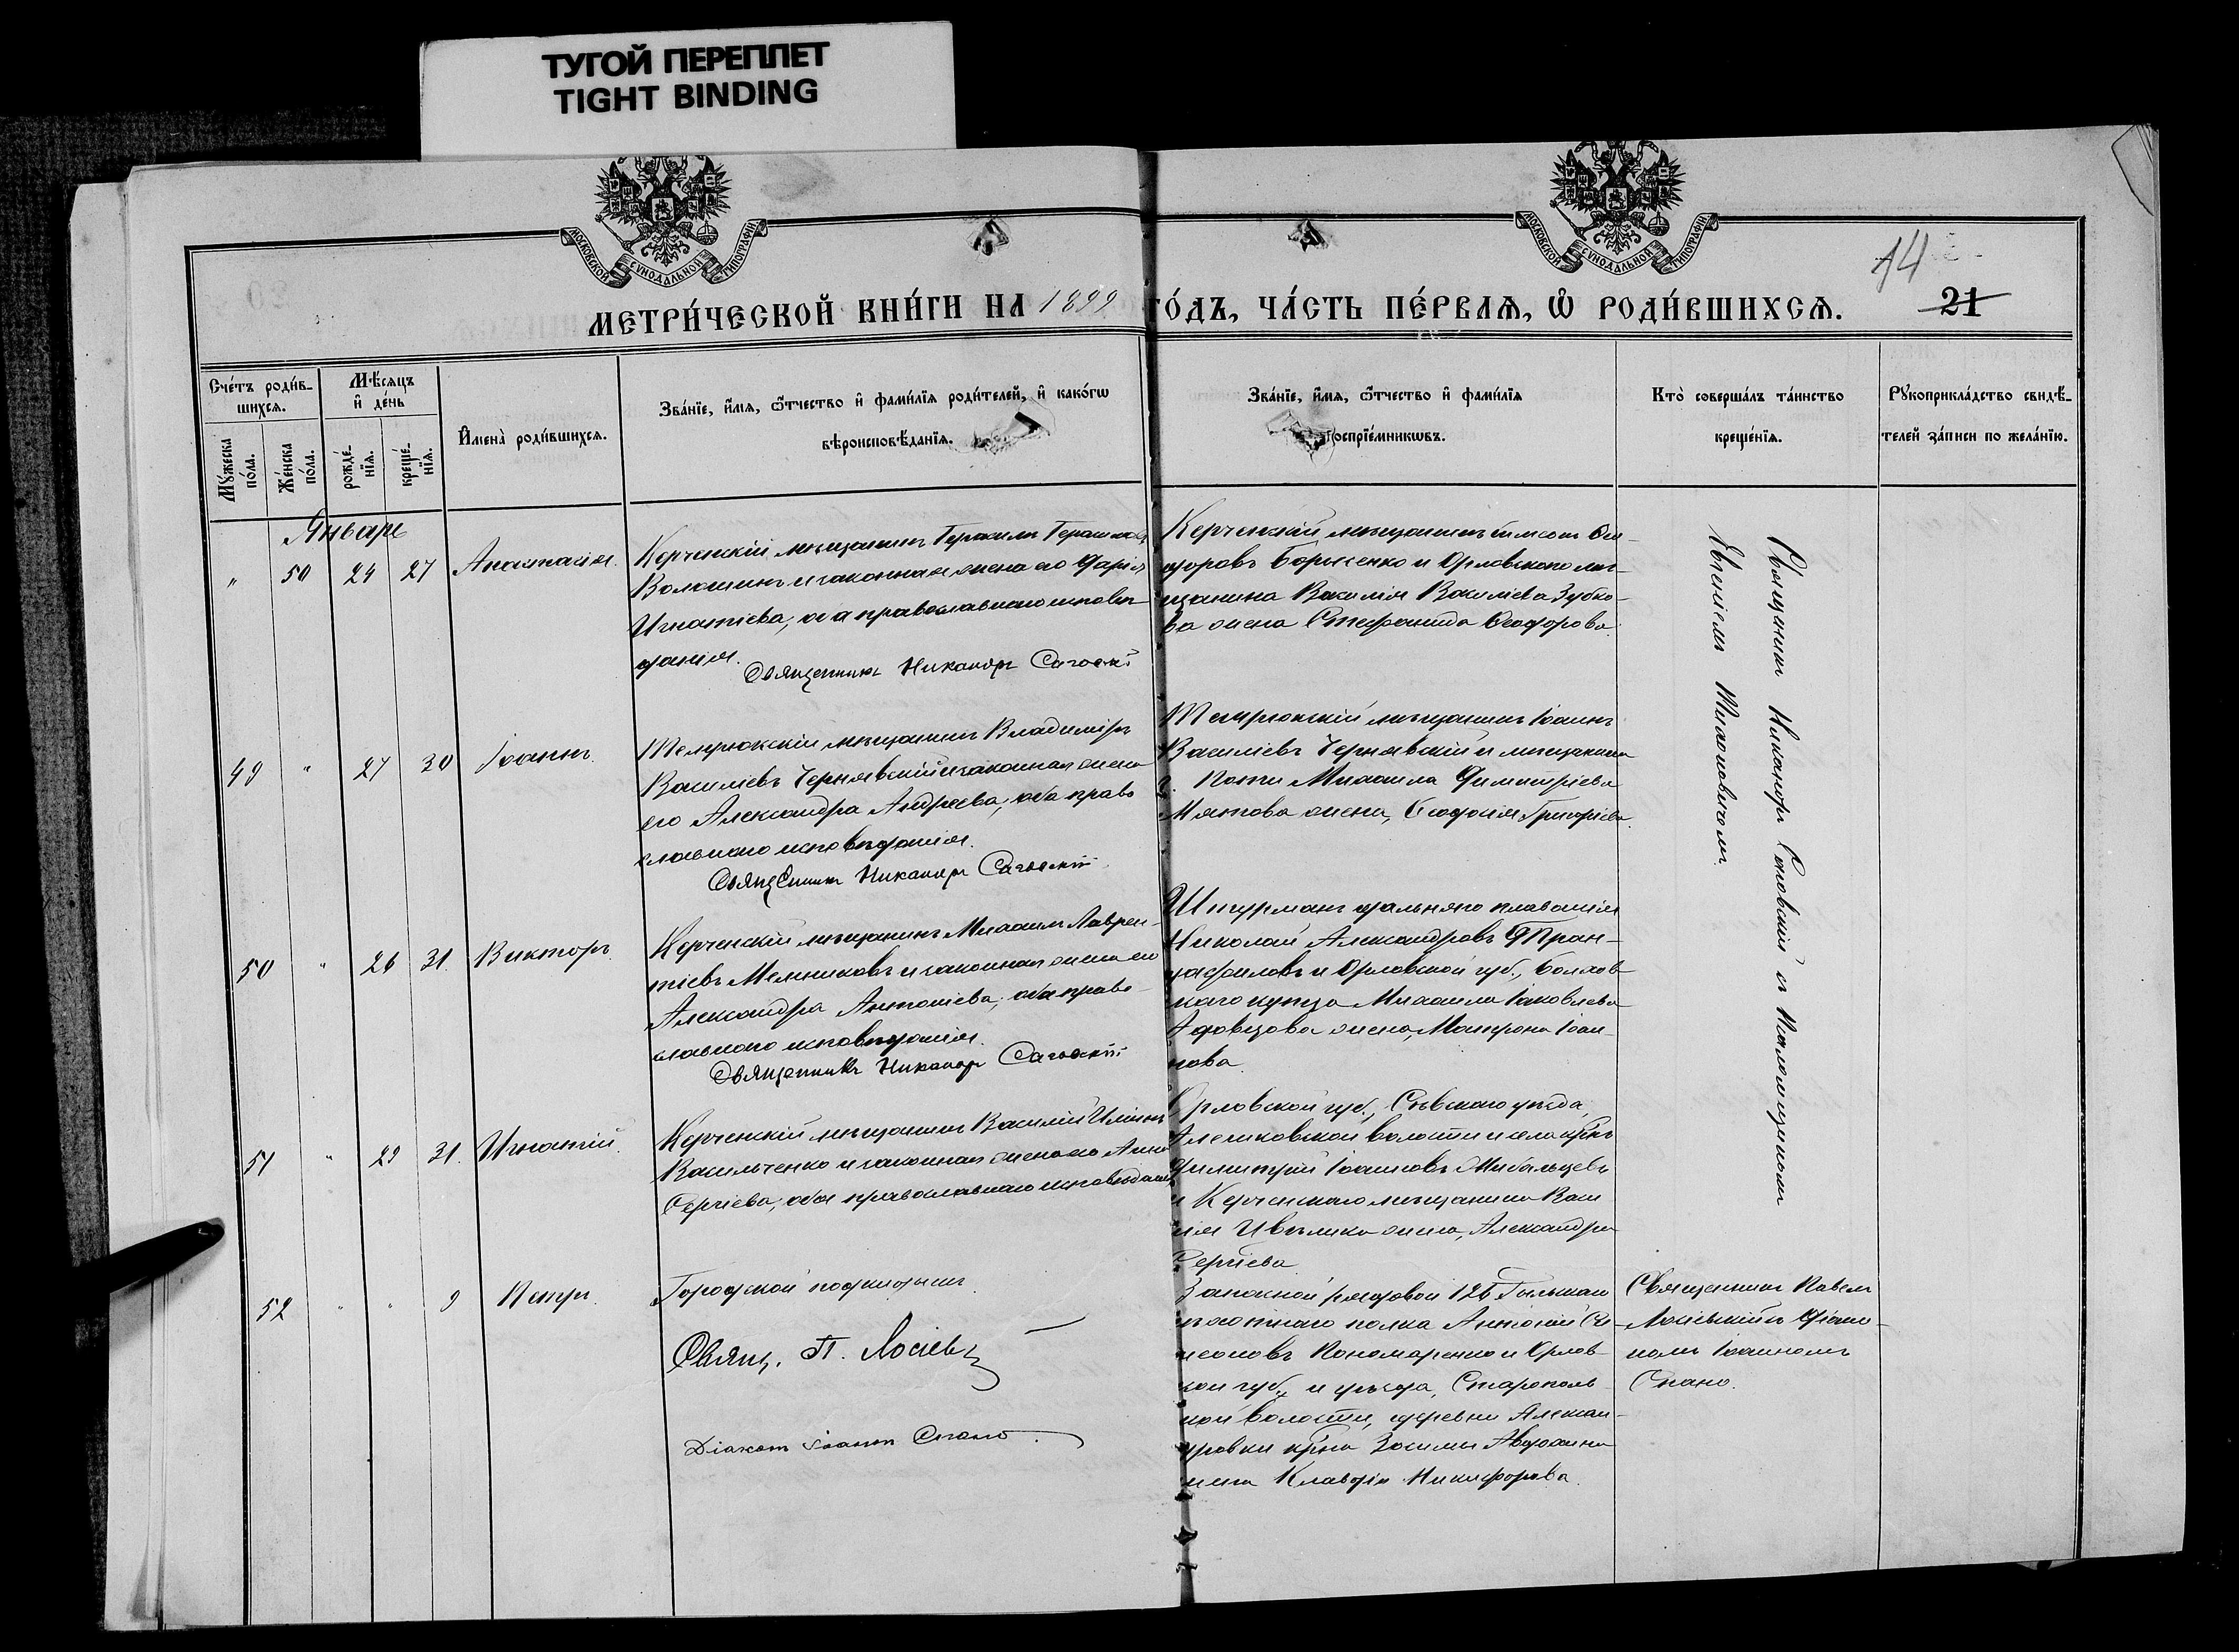 ТУГОЙ ПЕРЕПЛЕТ
TIGHT BINDING
МОСКОВСКОЙ СѴНОДАЛЬНОЙ ТИПОГРАФІИ
МОСКОВСКОЙ СѴНОДАЛЬНОЙ ТИПОГРАФІИ
14
МЕТРИ́ЧЕСКОЙ КНИ́ГИ НА 1899 ГО́ДЪ, ЧА́СТЬ ПЕ́РВАѦ, Ѡ РОДИ́ВШИХСѦ.
21
Сче́тъ роди́в-
шихся.
Мѣ́сяцъ
и҆ де́нь
Мꙋ́жеска
по́ла.
Же́нска
по́ла.
рожде́-
нїя.
креще́-
нїя.
И҆мена̀ роди́вшихся.
Зва́нїе, и҆́мя, ѻ҆́тчество и҆ фами́лїя роди́телей, и҆ како́гѡ
вѣроисповѣ́данїя.
Зва́нїе, и҆́мя, ѻ҆́тчество и҆ фами́лїя
воспрїе́мникѡвъ.
Кто̀ соверша́лъ та́инство
креще́нїя.
Рꙋкоприкла́дство свидѣ́-
телей за́писи по жела́нїю.
Январь
" 50 24 27 Анастасія.
Керченскій мѣщанинъ Герасимъ
Волошинъ и законная жена его Дарія
Игнатіева, оба православнаго исповѣ-
данія.
Священникъ Никаноръ
Керченскій мѣщанинъ Ѳео-
доровъ Борисенко и Орловскаго мѣ-
щанина Василія Василіева Зубко-
ва жена Стефанида Ѳеодорова.
49 " 27 30 Іоаннъ.
Темрюкскій мѣщанинъ Владиміръ
Василіевъ Чернявскій и законная жена
его Александра Андреева, оба право
славнаго исповѣданія.
Священникъ Никаноръ
Темрюкскій мѣщанинъ Іоаннъ
Василіевъ Чернявскій и мѣщанина
г. Поти Михаила Димитріева
жена, Григоріева.
50 " 26 31. Викторъ.
Керченскій мѣщанинъ Михаилъ Лаврен-
тіевъ Мельниковъ и законная жена его
Александра Антоніева, оба право-
славнаго исповѣданія.
Священникъ Никаноръ
Штурманъ дальняго плаванія
Николай Александровъ
и Орловской губ., Болхов
скаго купца Михаила Іаковлева
жена, Матрона Іоан-
нова.
51 " 29 31. Игнатій.
Керченскій мѣщанинъ Василій
Васильченко и законная жена его Анна
Сергіева, оба православнаго исповѣданія
Орловской губ., Сѣвскаго уѣзда,
волости и села
Димитрій Іоанновъ
и Керченскаго мѣщанина Васи
лія жена, Александра
Сергіева.
Священникъ Никаноръ съ Псаломщикомъ
Евгеніемъ
52 " " 9 Петръ.
Городской подкидышъ.
Свящ. П. Лосіевъ
Діаконъ Іоаннъ Спано.
Запасной рядовой 126 Рыльскаго
пѣхотнаго полка Антоній Си-
меоновъ Пономаренко и Орлов
ской губ. и уѣзда,
ской волости, деревни Алексан-
дровки Зосимы
жена Клавдія Никифорова.
Священникъ Павелъ
Лосіевскій съ Діако-
номъ Іоанномъ
Спано.